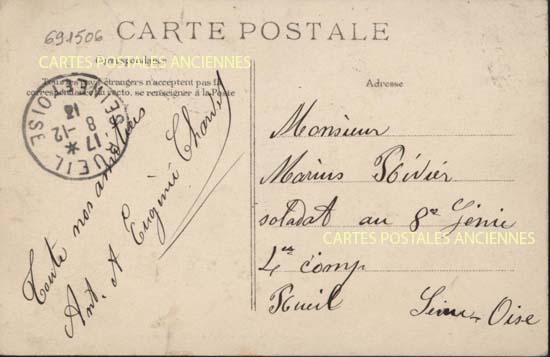 691506
CARTE POSTALE
CARTES POSTALES ANCIENNES
Correspondance
Tous les pays étrangers n'acceptent pas la
correspondance au recto, se renseigner à la Poste
Toute nos amitiés
Ant. A Eugénie
RUEIL
SEINE-ET-OISE
17 *
8 -12
13
Adresse
Monsieur
Marius Rivier
soldat au 8e Génie
CARTES POSTALES ANCIENNES
4e comp
Rueil Seine-Oise